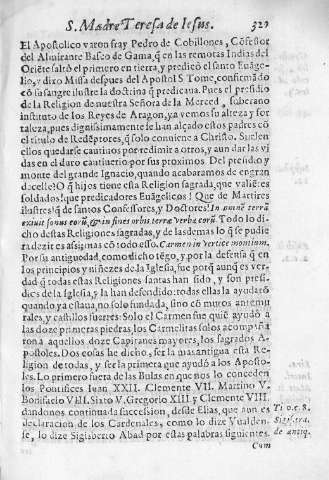 S. Madre Teresa de Iesus. 329
El Apostolico varon fray Pedro de Cobillones, Cõfessor
del Almirante Basco de Gama, q̃ en las remotas Indias del
Oriẽte saltò el primero en tierra, y predicò el santo Euãge-
lio, y dixo Missa despues del Apostol S. Tome, confirmãdo
cõ su sangre ilustre la doctrina q̃ predicaua. Pues el presidio
de la Religion de nuestra Señora de la Merced, soberano
instituto de los Reyes de Aragon, ya vemos su alteza y for
taleza, pues dignissimamente se han alçado estos padres cõ
el titulo de Redẽptores, q̃ solo conuiene a Christo. Suelen
ellos quedarse cautiuos por redimir a otros, y aun dar las vi
das en el duro cautiuerio por sus proximos. Del presidio y
monte del grande Ignacio, quando acabaremos de engran
decelle? O q̃ hijos tiene esta Religion sagrada, que valiẽtes
soldados! que predicadores Euãgelicos! Que de Martires
ilustres! q̃ de santos Confessores, y Doctores! In omnẽ terrã
exiuit sonus eorũ, & in fines orbis terræ verba eorũ. Todo lo di-
cho destas Religiones sagradas, y de las demas lo q̃ se pudie
ra dezir es assi, mas cõ todo esso, Carmen in vertice montium.
Por su antiguedad, como dicho tẽgo, y por la defensa q̃ en
los principios y niñezes de la Iglesia, fue porq̃ aunq̃ es ver-
dad q̃ todas estas Religiones santas han sido, y son presi-
dios de la Iglesia, y la han defendido: todas ellas la ayudarõ
quando ya estaua, no solo fundada, sino cõ muros antemu
rales, y castillos fuertes: Solo el Carmen fue quiẽ ayudò a
las doze primeras piedras, los Carmelitas solos acompaña
ron a aquellos doze Capitanes mayores, los sagrados A-
postoles. Dos cosas he dicho, ser la mas antigua esta Re-
ligion de todas, y ser la primera que ayudò a los Aposto-
les. Lo primero fuera de las Bulas en que nos lo conceden
los Pontifices Iuan XXII. Clemente VII. Martino V.
Bonifacio VIII. Sixto V. Gregorio XIII. y Clemente VIII.
dandonos continuada succession, desde Elias, que aun es
declaracion de los Cardenales, como lo dize Vualden-
se, lo dize Sigisberto Abad por estas palabras siguientes.
To. 5. 8.
de antiq.
Cum